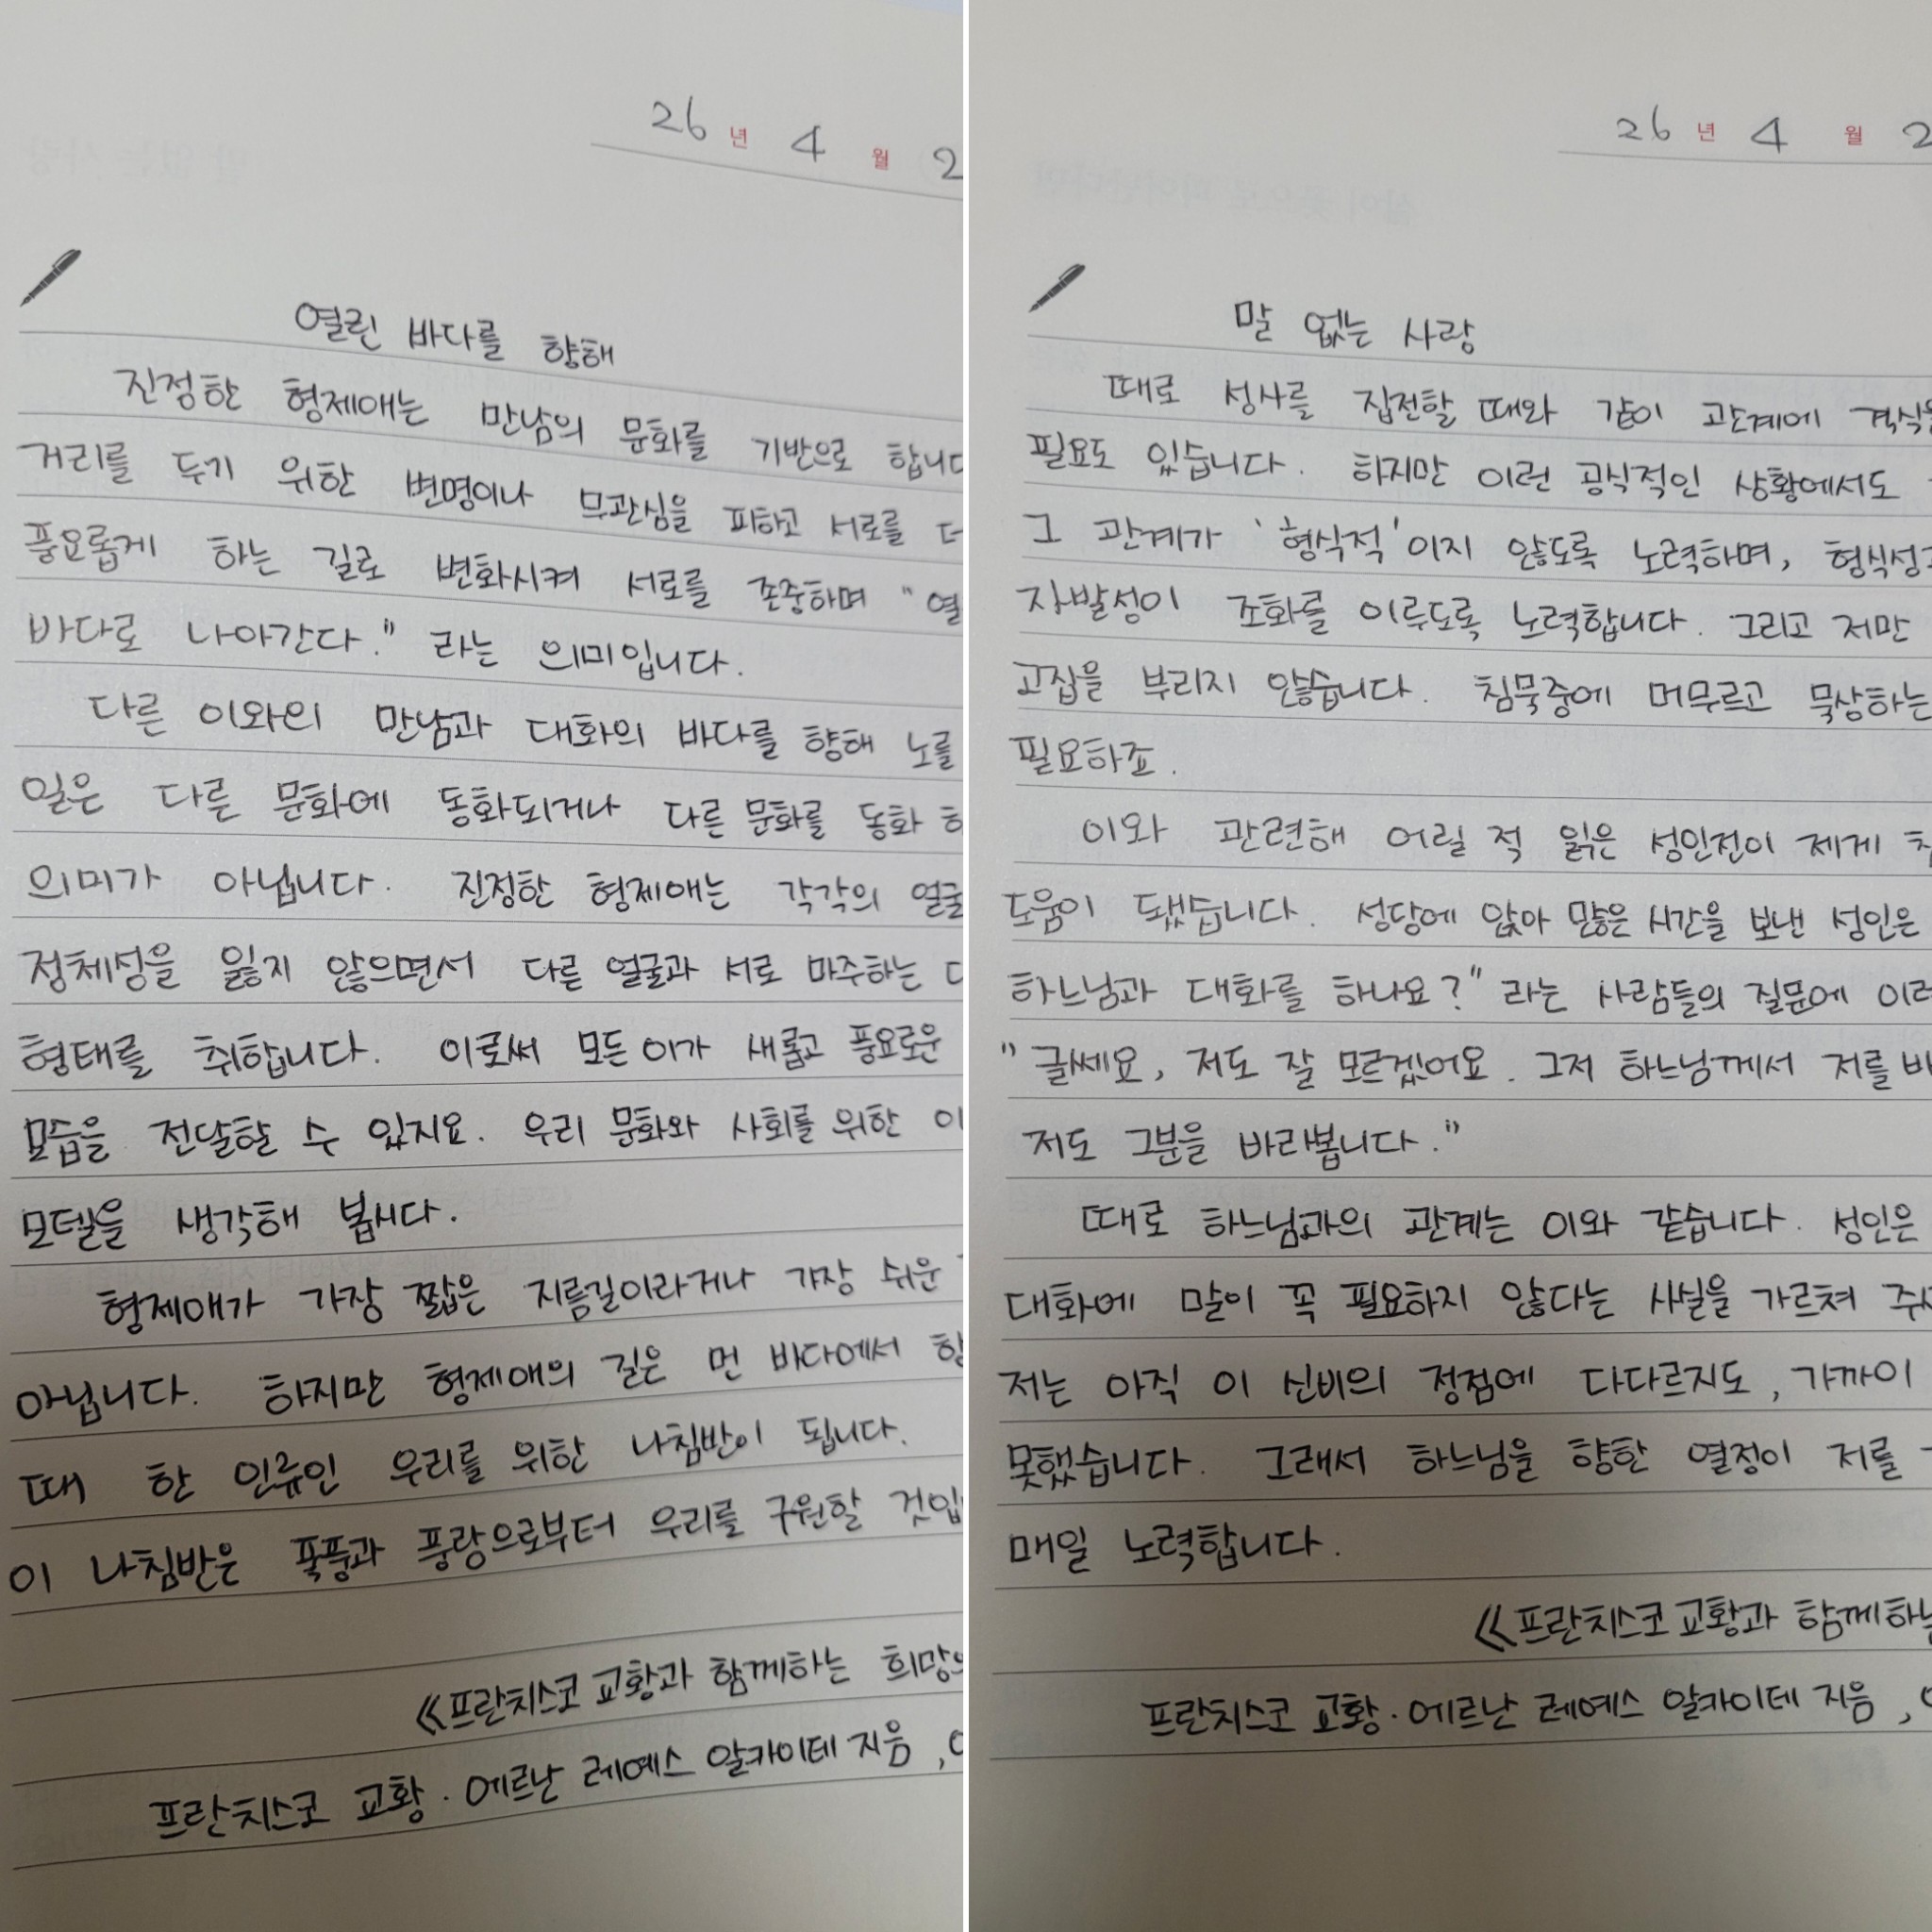 26 년 4 월 2
열린 바다를 향해
진정한 형제애는 만남의 문화를 기반으로 합니다
거리를 두기 위한 변명이나 무관심을 피하고 서로를 더
풍요롭게 하는 길로 변화시켜 서로를 존중하며 "열
바다로 나아간다." 라는 의미입니다.
다른 이와의 만남과 대화의 바다를 향해 노를
일은 다른 문화에 동화되거나 다른 문화를 동화
의미가 아닙니다. 진정한 형제애는 각각의 얼굴
정체성을 잃지 않으면서 다른 얼굴과 서로 마주하는
형태를 취합니다. 이로써 모든 이가 새롭고 풍요로운
모습을 전달할 수 있지요. 우리 문화와 사회를 위한 이
모델을 생각해 봅시다.
형제애가 가장 짧은 지름길이라거나 가장 쉬운
아닙니다. 하지만 형제애의 길은 먼 바다에서
때 한 인류인 우리를 위한 나침반이 됩니다.
이 나침반은 폭풍과 풍랑으로부터 우리를 구원할 것입
《프란치스코 교황과 함께하는 희망의
프란치스코 교황·에르난 레예스 알카이데 지음,
26 년 4 월 2
말 없는 사랑
때로 성사를 집전할 때와 같이 관계에 격식을
필요도 있습니다. 하지만 이런 공식적인 상황에서도
그 관계가 '형식적'이지 않도록 노력하며, 형식성과
자발성이 조화를 이루도록 노력합니다. 그리고 저만
고집을 부리지 않습니다. 침묵중에 머무르고 묵상하는
필요하죠.
이와 관련해 어릴 적 읽은 성인전이 제게
도움이 됐습니다. 성당에 앉아 많은 시간을 보낸 성인은
하느님과 대화를 하나요?" 라는 사람들의 질문에 이러
"글쎄요, 저도 잘 모르겠어요. 그저 하느님께서 저를 바
저도 그분을 바라봅니다."
때로 하느님과의 관계는 이와 같습니다. 성인은
대화에 말이 꼭 필요하지 않다는 사실을 가르쳐
저는 아직 이 신비의 정점에 다다르지도, 가까이
못했습니다. 그래서 하느님을 향한 열정이 저를
매일 노력합니다.
《프란치스코 교황과 함께하는
프란치스코 교황·에르난 레예스 알카이데 지음,